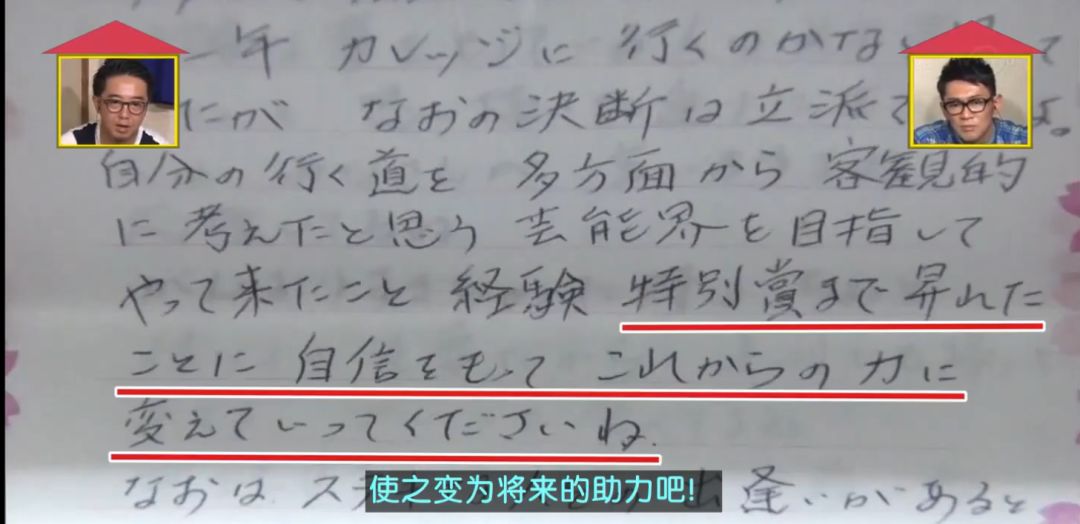 一年 カレッジに 行くのかな
たが なおの決断は立派で よ。
自分の行く道を 多方面から 客観的
に考えたと思う 芸能界を目指して
やって来たこと 経験 特別賞まで昇れた
ことに 自信をもって これからの力に
変えていってくださいね.
なおは、ス 逢いがあると
使之变为将来的助力吧!